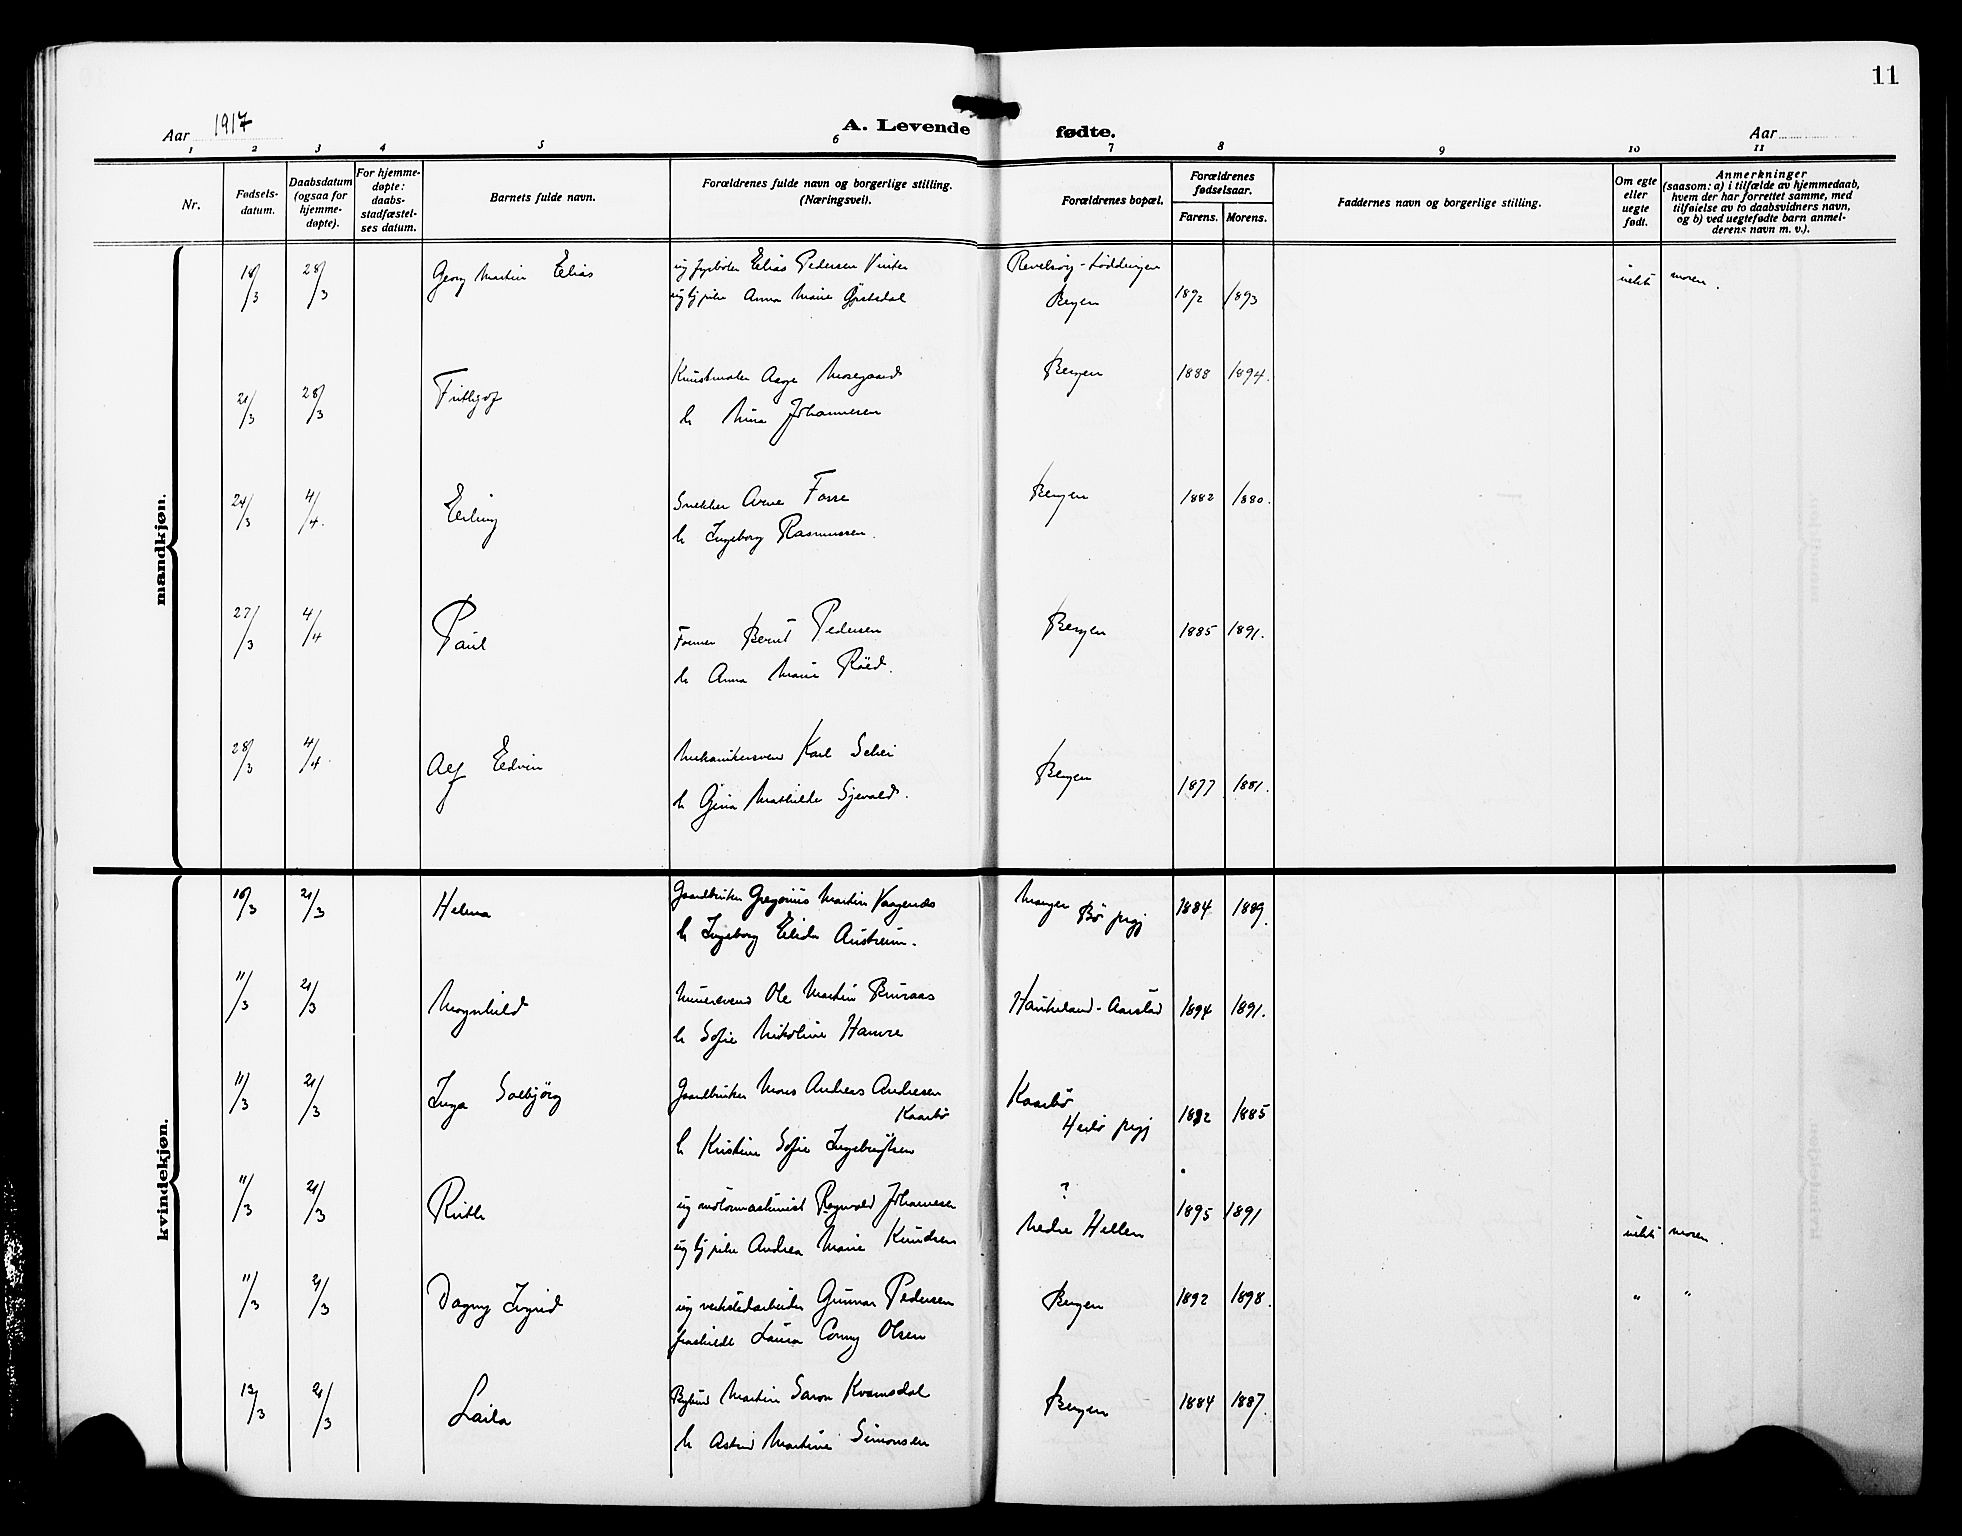 11
Aar 1917
A. Levende fødte.
Aar
1 2 3 4 5 6 7 8 9 10 11
Nr.
Fødsels-
datum.
Daabsdatum
(ogsaa for
hjemme-
døpte).
For hjemme-
døpte:
daabs-
stadfæstel-
ses datum.
Barnets fulde navn.
Forældrenes fulde navn og borgerlige stilling.
(Næringsvei).
Forældrenes bopæl.
Forældrenes
fødselsaar.
Farens. Morens.
Faddernes navn og borgerlige stilling.
Om egte
eller
uegte
født.
Anmerkninger
(saasom: a) i tilfælde av hjemmedaab,
hvem der har forrettet samme, med
tilføielse av to daabsvidners navn,
og b) ved uegtefødte barn anmel-
derens navn m. v.).
mandkjøn.
18/3 28/3 Georg Martin Elias ug fyrbøter Elias Pedersen Vinter
ug hj pike Anna Marie
Bergen 1892 1893 uekte moren.
21/3 28/3 Frithjof Kunstmaler Aage Mosegaard Bergen 1888 1894.
h Mina Johannesen
24/3 4/4. Erling Snekker Arne Fosse Bergen 1882 1880.
h Ingeborg Rasmussen.
27/3 4/4 Paul Former Bernt Pedersen Bergen 1885 1891.
h Anna Marie Röed.
28/3 4/4. Alf Edvin Mekanikersvend Karl Schei Bergen 1877 1881.
h Gina Mathilde Sjevold.
kvindekjøn.
10/3 21/3 Helena Gaardbruker Gregorius Martin Vaagenes Manger 1884 1889.
Bö prgj
h Ingeborg Elida Austreim.
11/3 21/3 Magnhild Murersvend Ole Martin Bruraas Haukeland - Aarstad 1894 1891.
h Sofie Nikoline Hamre
11/3 21/3 Inga Solbjörg Gaardbruker Mons Andreas Andresen Kaarbö
Kaarbö
Herlö prgj 1882 1885
h Kristine Sofie Ingebrigtsen
11/3 21/3 Ruth ug motormaskinist Ragnvald Johannesen ? 1895 1891
ug hj pike Andrea Marie Knudsen Nedre Hellen uekte moren.
11/3 21/3 Dagny Ingrid ug verkstedarbeider Gunnar Pedersen Bergen 1892 1898. " "
fraskildt Laura Conny Olsen
12/3 21/3 Laila Bybud Martin Saron Kvamsdal Bergen 1884 1887.
h Astrid Martine Simonsen